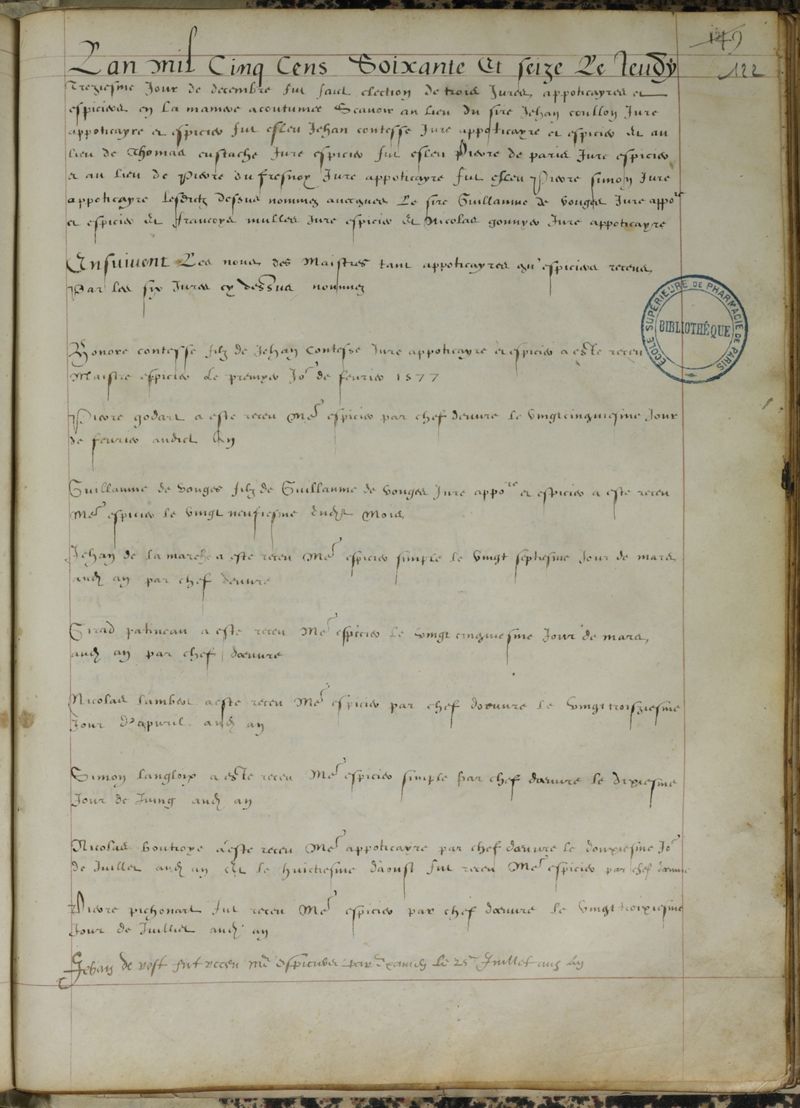 149
122
Lan mil Cinq Cens Soixante Et seize Le Jeudy
Treziesme Jour de decembre fut faict election de trois Jurez, appoticayres et
espiciers en la maniere acoutumee Scavoir au lieu du sire Jehan coullon Jure
appoticayre et espicier fut esleu Jehan contesse Jure appoticayre et espicier et au
lieu de Thomas eustache Jure espicier fut esleu Pierre de paris Jure espicier
et au lieu de Pierre dufresnoy Jure appoticayre fut esleu Pierre simon Jure
appoticayre Lesditz dessus nommez avecques Le sire Guillaume de vouges Jure appore
et espicier et francoys mulles Jure espicier et Nicolas gonnyer Jure appoticayre
Ensuivent Les noms des Maistres tant appoticayres qu'espiciers receuz
Par les six Jurez cy dessus nommez
Honore contesse filz de Jehan Contesse Jure appoticayre et espicier a este receu
Maistre espicier le premyer Jor de febvrier 1577
Pierre godart a este receu Me espicier par chef deuvre le vingtcinquiesme Jour
de febvrier audict An
Guillaume de vouges filz de Guillaume de vouges Jure appore et espicier a este receu
Me espicier le vingt neufiesme dudit Mois
Jehan de la marche a este receu Me espicier simple le vingt septiesme Jour de mars
aud an par chef deuvre
patineau a este receu Me espicier le vingt cinquiesme Jour de mars,
aud an par chef dœuvre
Nicolas Lambert a este receu Me espicier par chef dœuvre le vingt troisziesme
Jour d'apvril aud an
Simon Langloix a este receu Me espicier simple par chef dœuvre le dixiesme
Jour de Juing aud an
Nicolas boutroye a este receu Me appoticayre par chef dœuvre le douxiesme Jor
de Juillet aud an et le huictiesme daoust fut receu Me espicier par chef dœuvre
Pierre pichonart fut receu Me espicier par chef dœuvre le vingt troixiesme
Jour de Juillet aud an
Jehan de fut receu Me espicier par Examen le 25e Juillet aud an
ECOLE SUPÉRIEURE DE PHARMACIE DE PARIS
BIBLIOTHÉQUE